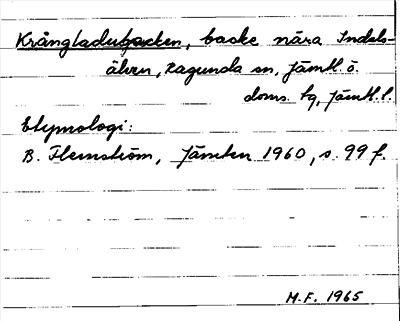 Krångladubacken, backe nära Indals-
älven, Ragunda sn, Jämtl. ö.
doms. tg, Jämtl. l.
Etymologi:
B. Flemström, Jämten 1960, s. 99 f.
M.F. 1965